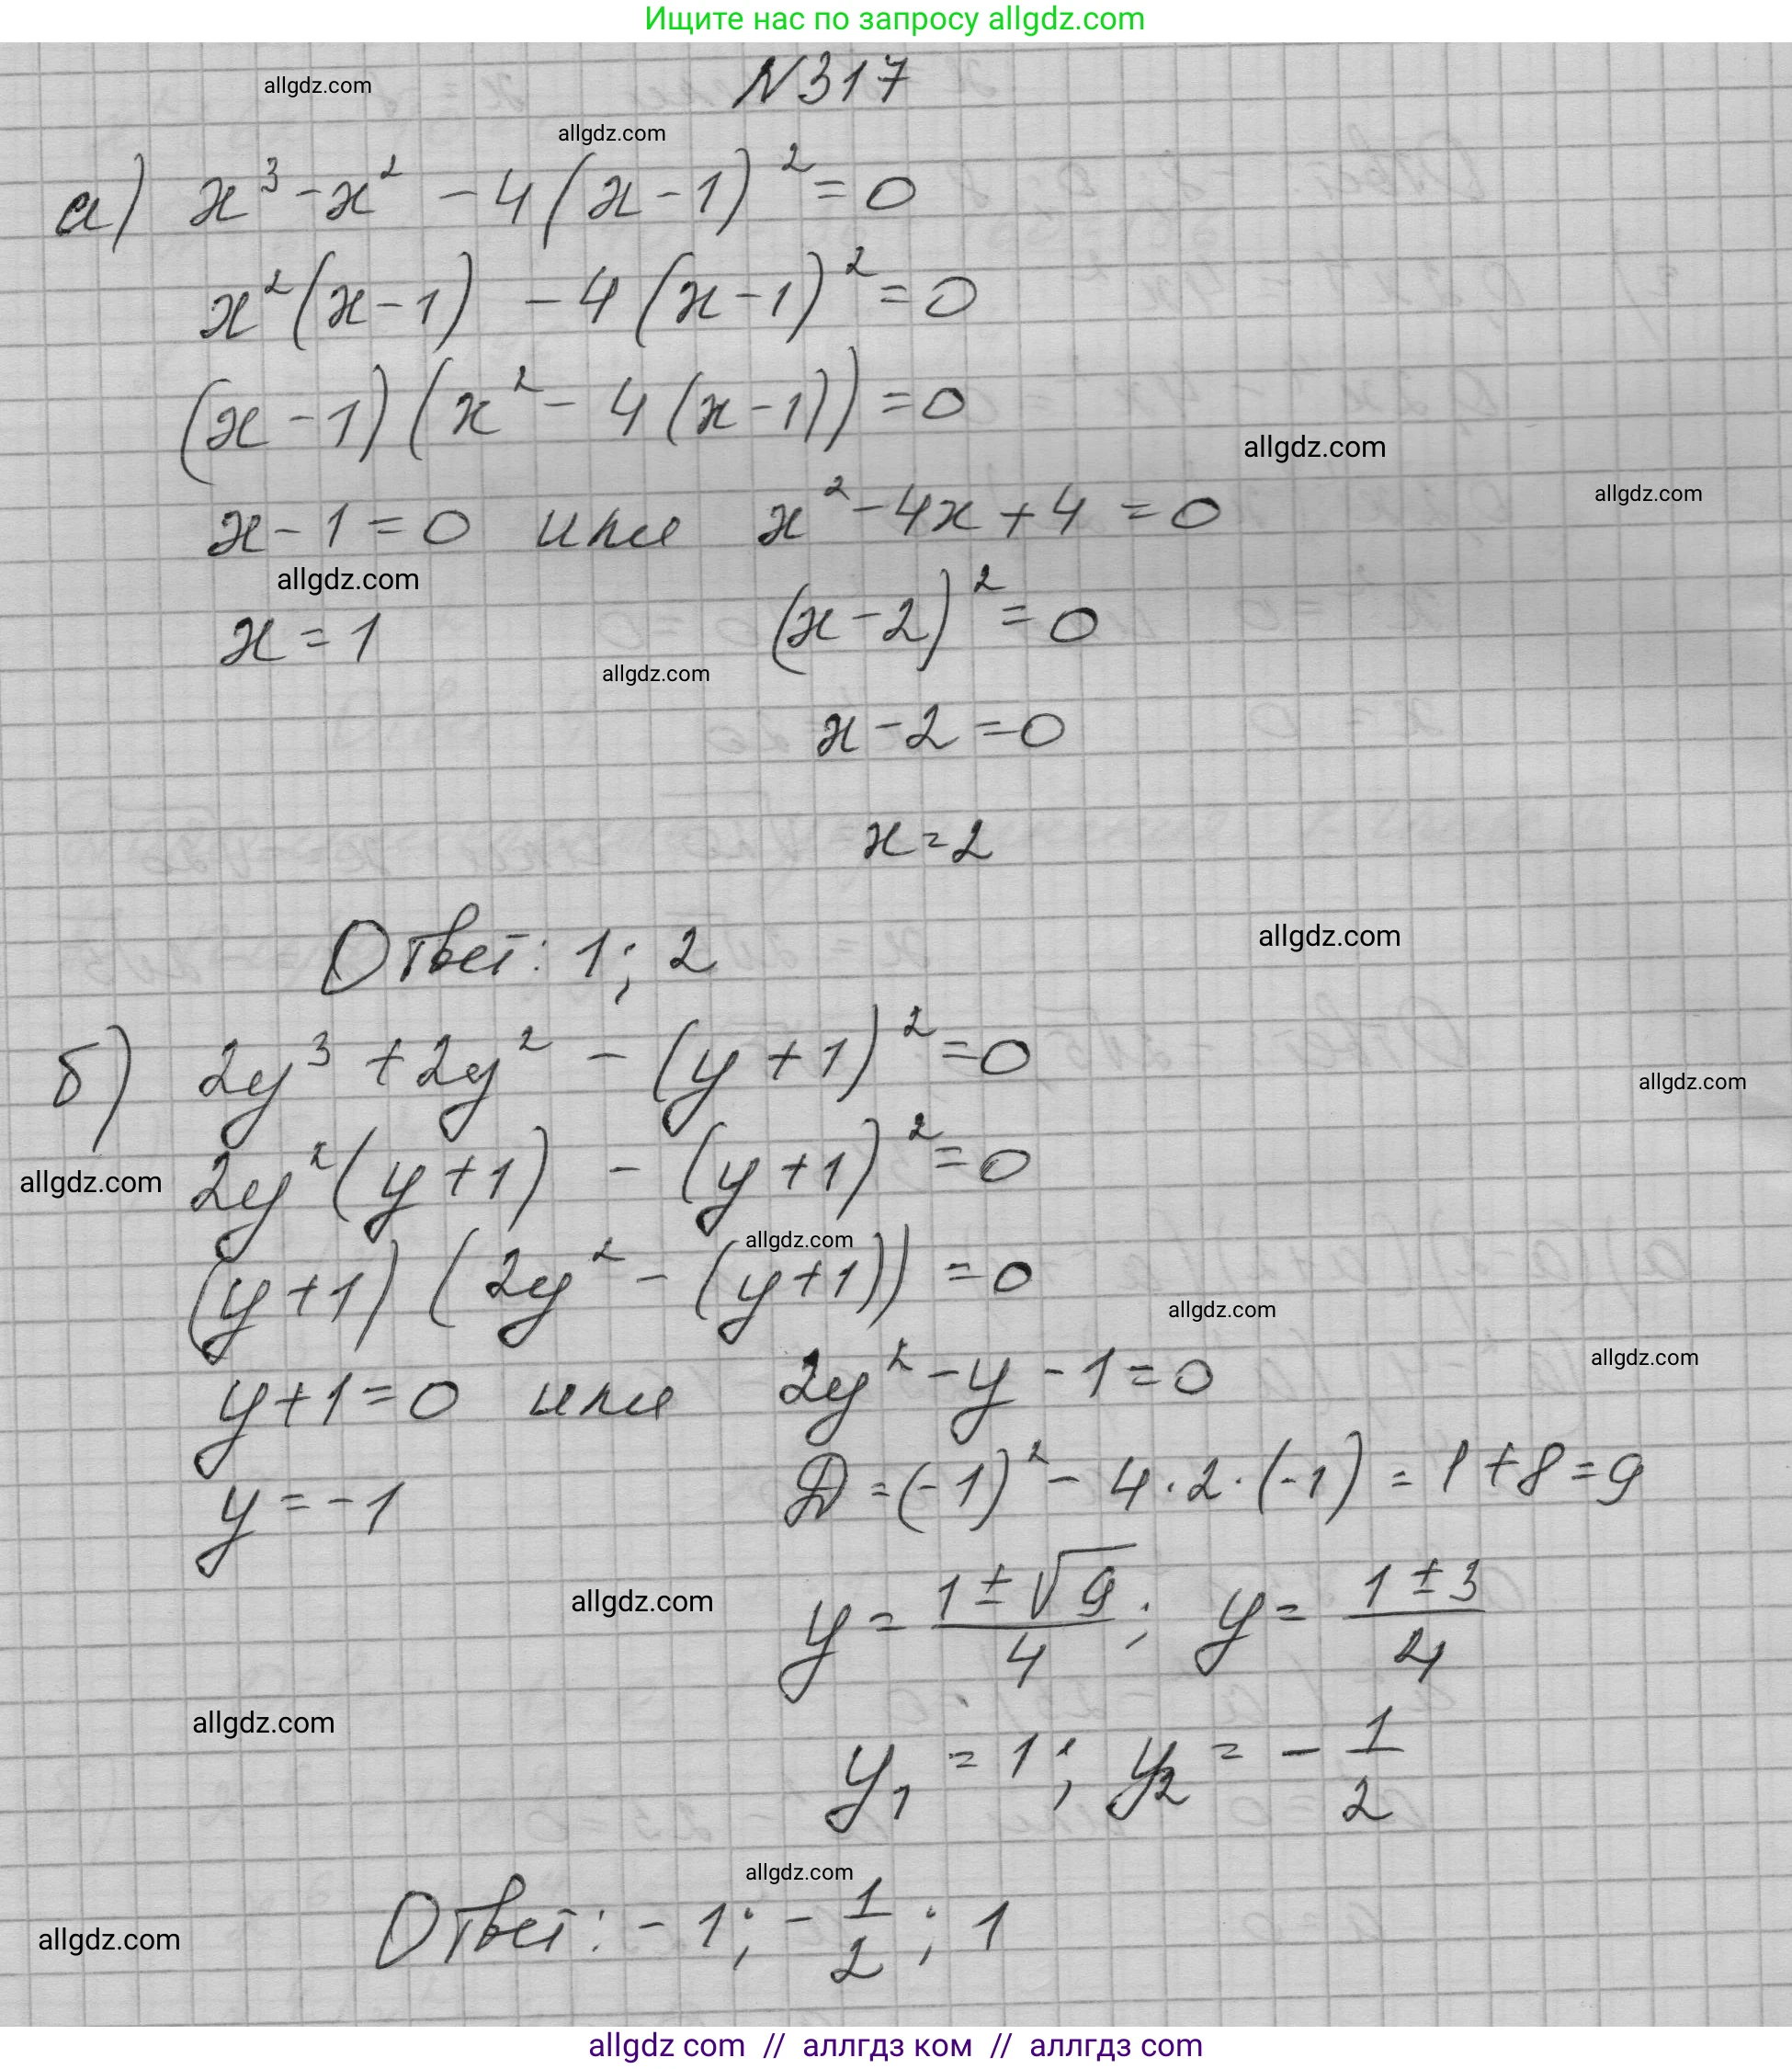 Ищите нас по запросу allgdz.com
allgdz.com
N317
allgdz.com
а) x³ - x² - 4(x-1)² = 0
x²(x-1) - 4(x-1)² = 0
(x-1)(x² - 4(x-1)) = 0
allgdz.com
allgdz.com
x-1=0 или x² - 4x + 4 = 0
allgdz.com
x = 1 (x-2)² = 0
allgdz.com
x - 2 = 0
x = 2
Ответ: 1; 2
allgdz.com
б) 2y³ + 2y² - (y+1)² = 0
allgdz.com
allgdz.com
2y²(y+1) - (y+1)² = 0
allgdz.com
(y+1)(2y² - (y+1)) = 0
allgdz.com
allgdz.com
y+1=0 или 2y² - y - 1 = 0
y = -1 D = (-1)² - 4·2·(-1) = 1+8=9
allgdz.com
y = (1±√9)/4; y = (1±3)/4
allgdz.com
y₁ = 1; y₂ = -1/2
allgdz.com
Ответ: -1; -1/2; 1
allgdz.com
allgdz com // аллгдз ком // аллгдз com